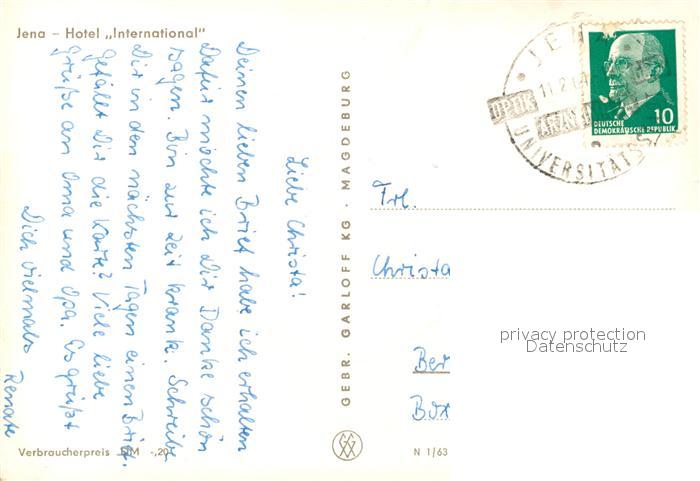 Jena – Hotel „International"
Liebe Christa!
Deinen lieben Brief habe ich erhalten
Dafür möchte ich Dir Danke schön
sagen. Bin zur Zeit krank. Schreibe
Dir in den nächsten Tagen einen Brief.
Gefällt Dir die Karte? Viele liebe
Grüße an Oma und Opa. Es grüßt
Dich vielmals
Renate
Verbraucherpreis DM -,20
GEBR. GARLOFF KG · MAGDEBURG
N 1/63
JENA
11.2.64
OPTIK
UNIVERSITÄTSS
10
DEUTSCHE
DEMOKRATISCHE REPUBLIK
Frl.
Christa
Ber
Box
privacy protection
Datenschutz